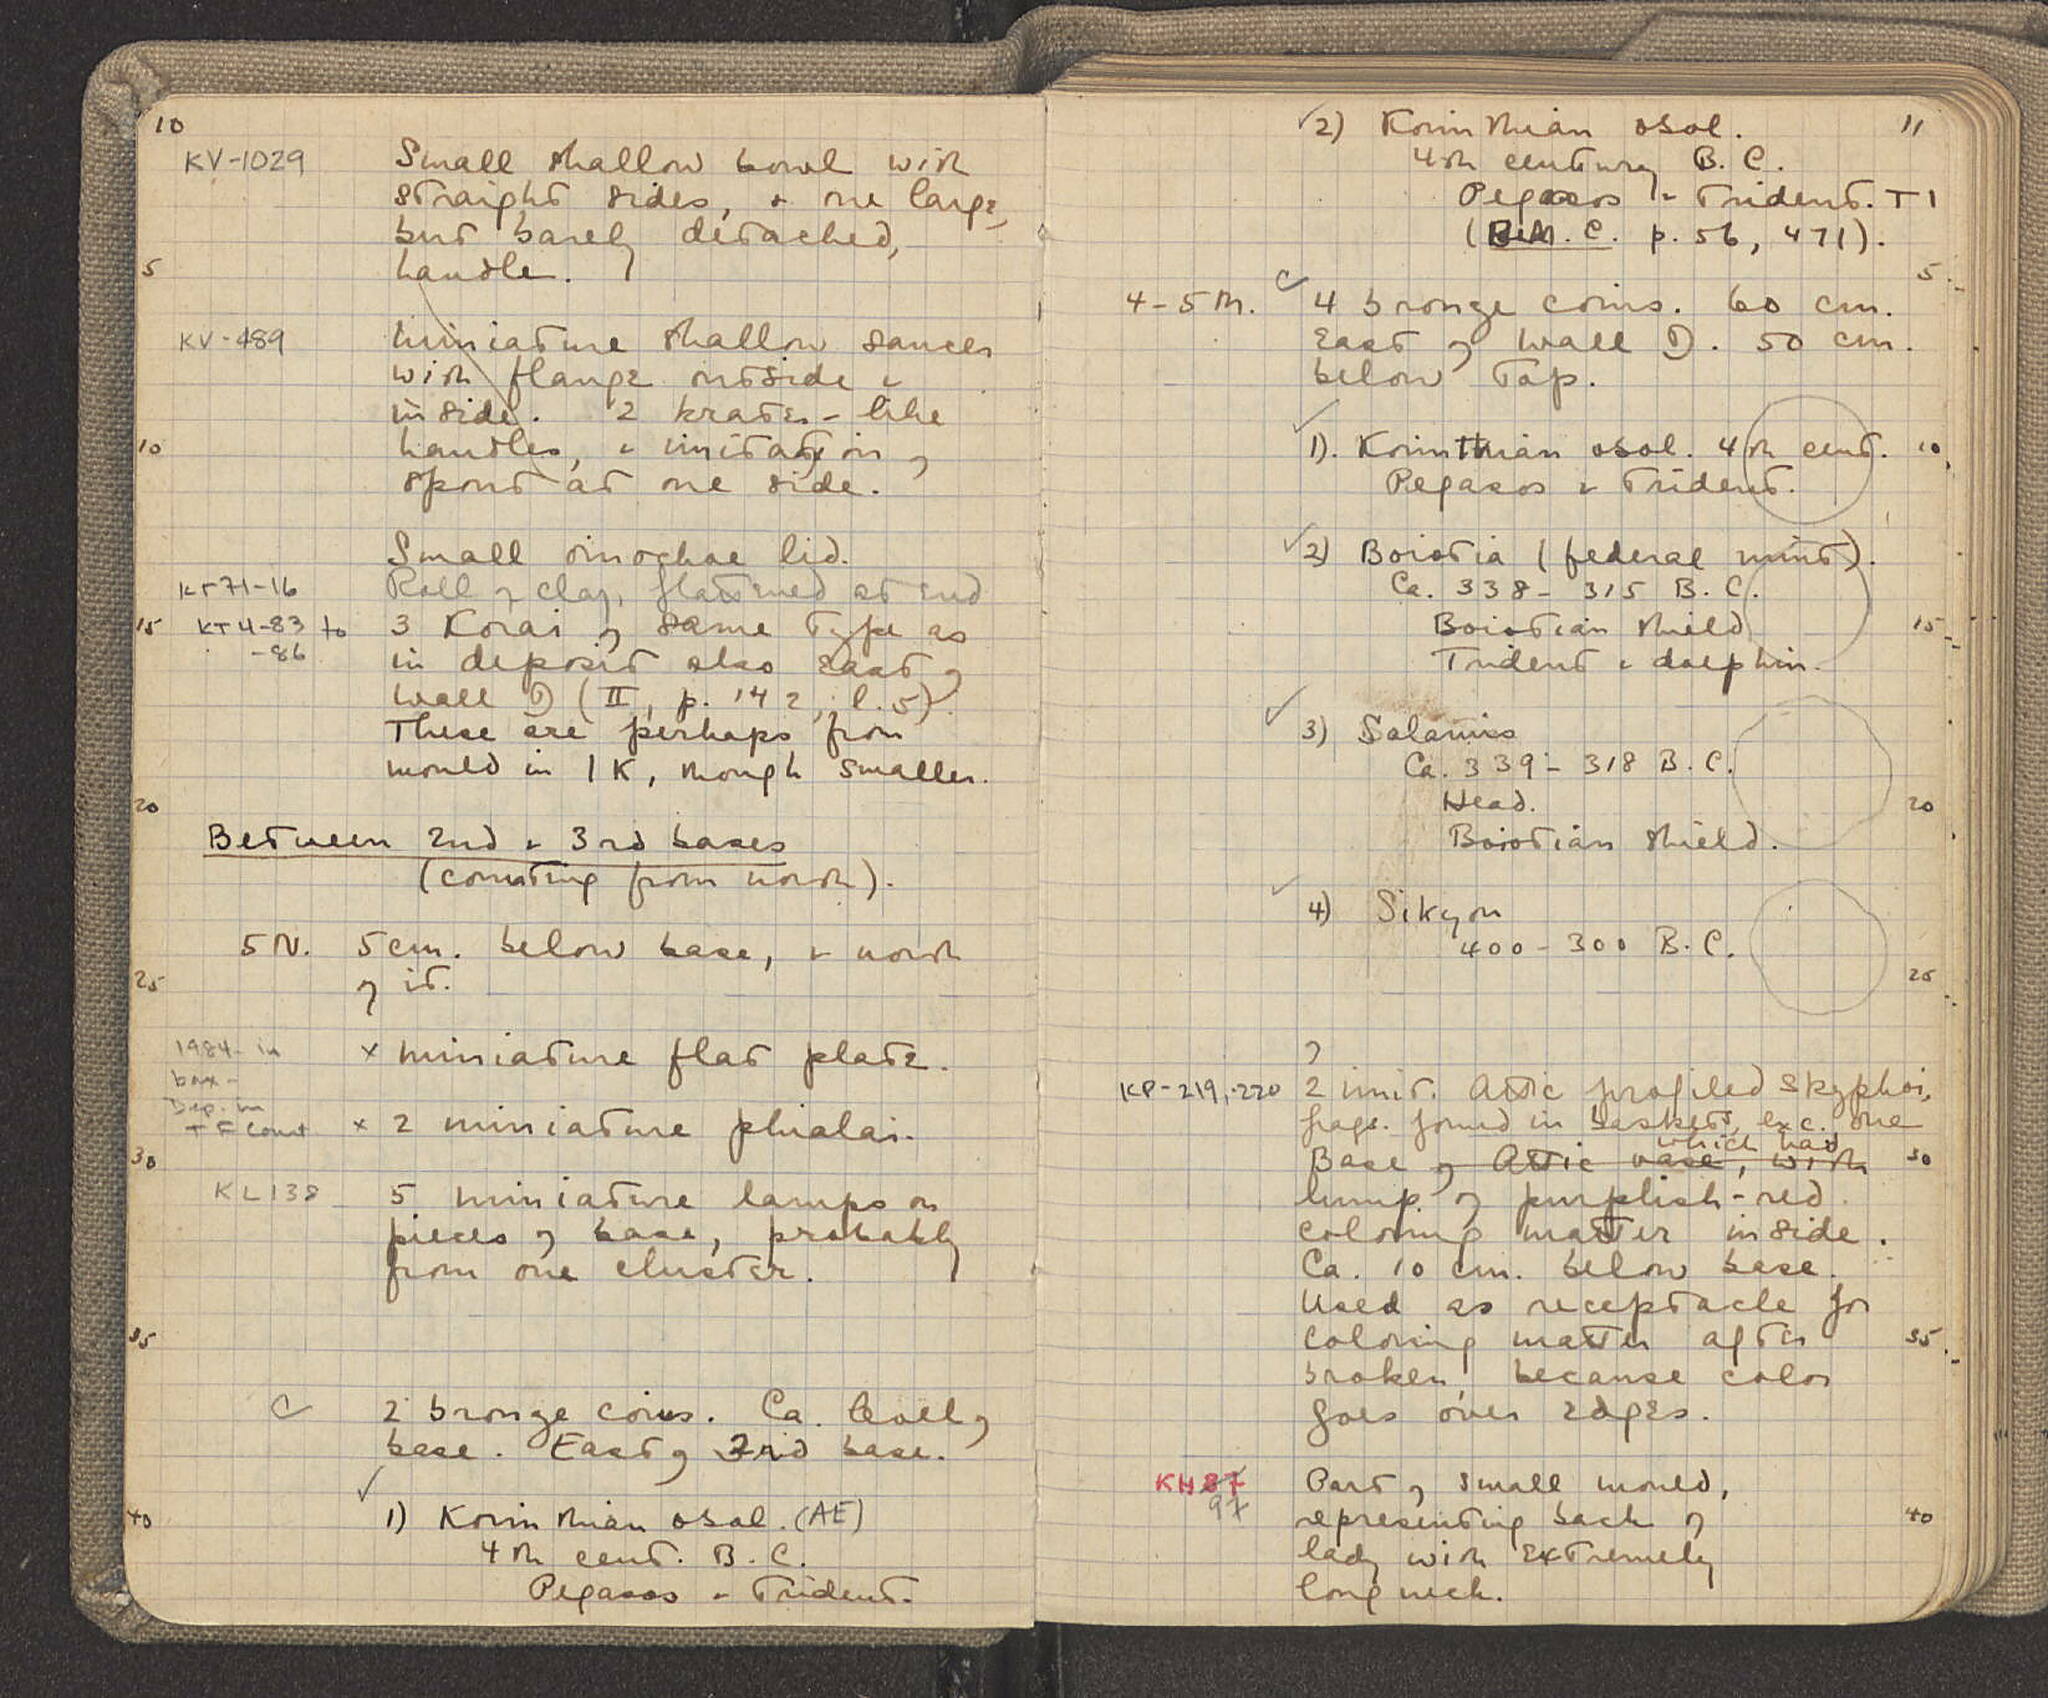 10
KV-1029 Small shallow bowl with
straight sides, & one large,
but barely detached,
5 handle.
KV-489 Miniature shallow saucer
with flange outside &
inside. 2 krater-like
10 handles, & imitation of
spout at one side.
Small oinochoe lid.
KT 71-16 Roll of clay, flattened at end
15 KT 4-83 to 3 Korai of same type as
-86 in deposit also east of
Wall D (II, p. 142, l. 5).
These are perhaps from
mould in 1K, though smaller.
20
Between 2nd & 3rd bases
(counting from north).
5 N. 5 cm. below base, & north
25 of it.
1984 - in x Miniature flat plate.
box -
Dep. in
T F Court x 2 miniature phialai.
30
KL 138 5 miniature lamps on
pieces of base, probably
from one cluster.
35
C ✓ 2 bronze coins. Ca. level of
base. East of 3rd base.
✓
40 1) Korinthian obol. (AE)
4th cent. B.C.
Pegasos & Trident.
✓2) Korinthian obol. 11
4th century B.C.
Pegasos & Trident. T1
(B.M.C. p. 56, 471).
5
4-5 M. C✓ 4 bronze coins. 60 cm.
East of Wall D. 50 cm.
below top.
✓
1). Korinthian obol. 4th cent. 10
Pegasos & Trident.
✓2) Boiotia (federal mint).
Ca. 338 - 315 B.C.
Boiotian shield 15
Trident & dolphin.
✓
3) Salamis
Ca. 339 - 318 B.C.
Head. 20
Boiotian shield.
✓
4) Sikyon
400 - 300 B.C.
25
?
KP-219, -220 2 imit. Attic profiled skyphoi,
frags. found in baskets, exc. one
which had
Base of Attic vase, with 30
lump of purplish-red
coloring matter inside.
Ca. 10 cm. below base.
Used as receptacle for
coloring matter after 35
broken, because color
goes over edges.
KH87 Part of small mould,
97
representing back of 40
lady with extremely
long neck.